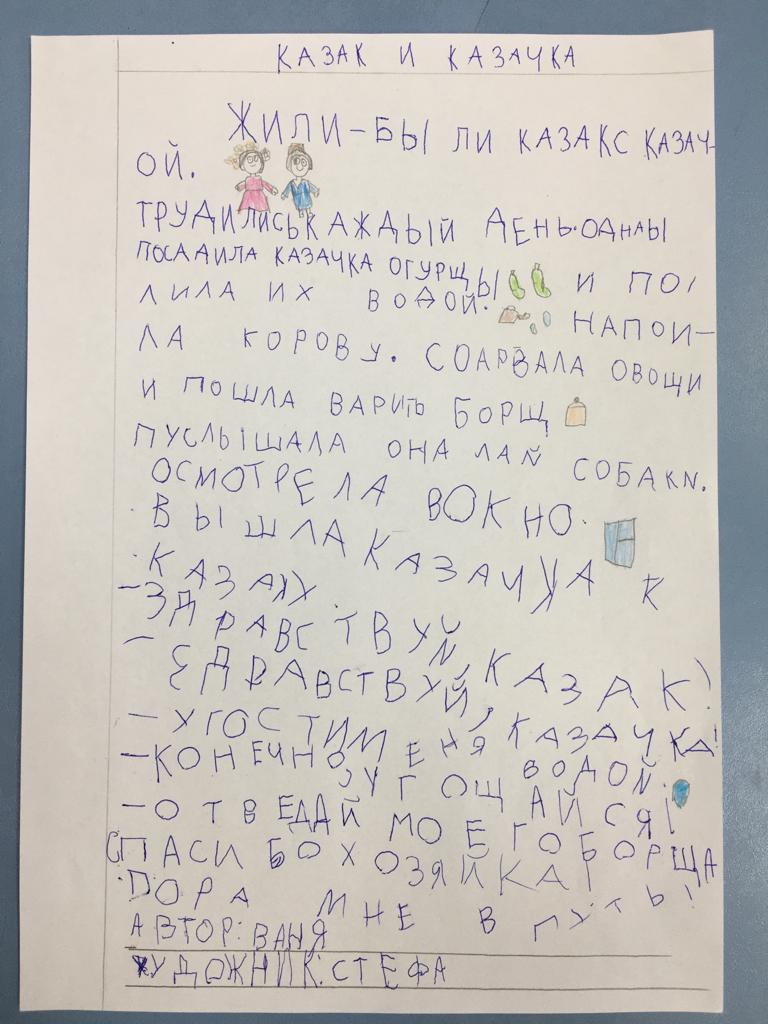 КАЗАК И КАЗАЧКА
ЖИЛИ-БЫ ЛИ КАЗАКС КАЗАЧ-
ОЙ.
ТРУДИЛИСЬКАЖДЫЙ ДЕНЬ.ОДНАЫ
ПОСАДИЛА КАЗАЧКА ОГУРЩЫ И ПО
ЛИЛА ИХ ВОДОЙ. НАПОИ-
ЛА КОРОВУ. СОАРВАЛА ОВОЩИ
И ПОШЛА ВАРИТЬ БОРЩ
ПУСЛЫШАЛА ОНА ЛАЙ СОБАКИ.
ОСМОТРЕЛА ВОКНО.
ВЫШЛА КАЗАЧКА К
КАЗАКУ.
-ЗДРАВСТВУЙ
- ЗДРАВСТВУЙ, КАЗАК!
-УГОСТИМ ЕНЯ, КАЗАЧКА! ВОДОЙ.
-КОНЕЧНО, УГОЩАЙСЯ!
-ОТВЕДАЙ МОЕГО БОРЩА
СПАСИ БОХОЗЯЙКА!
ПОРА МНЕ В ПУТЬ!
АВТОР: ВАНЯ
ХУДОЖНИК: СТЕФА